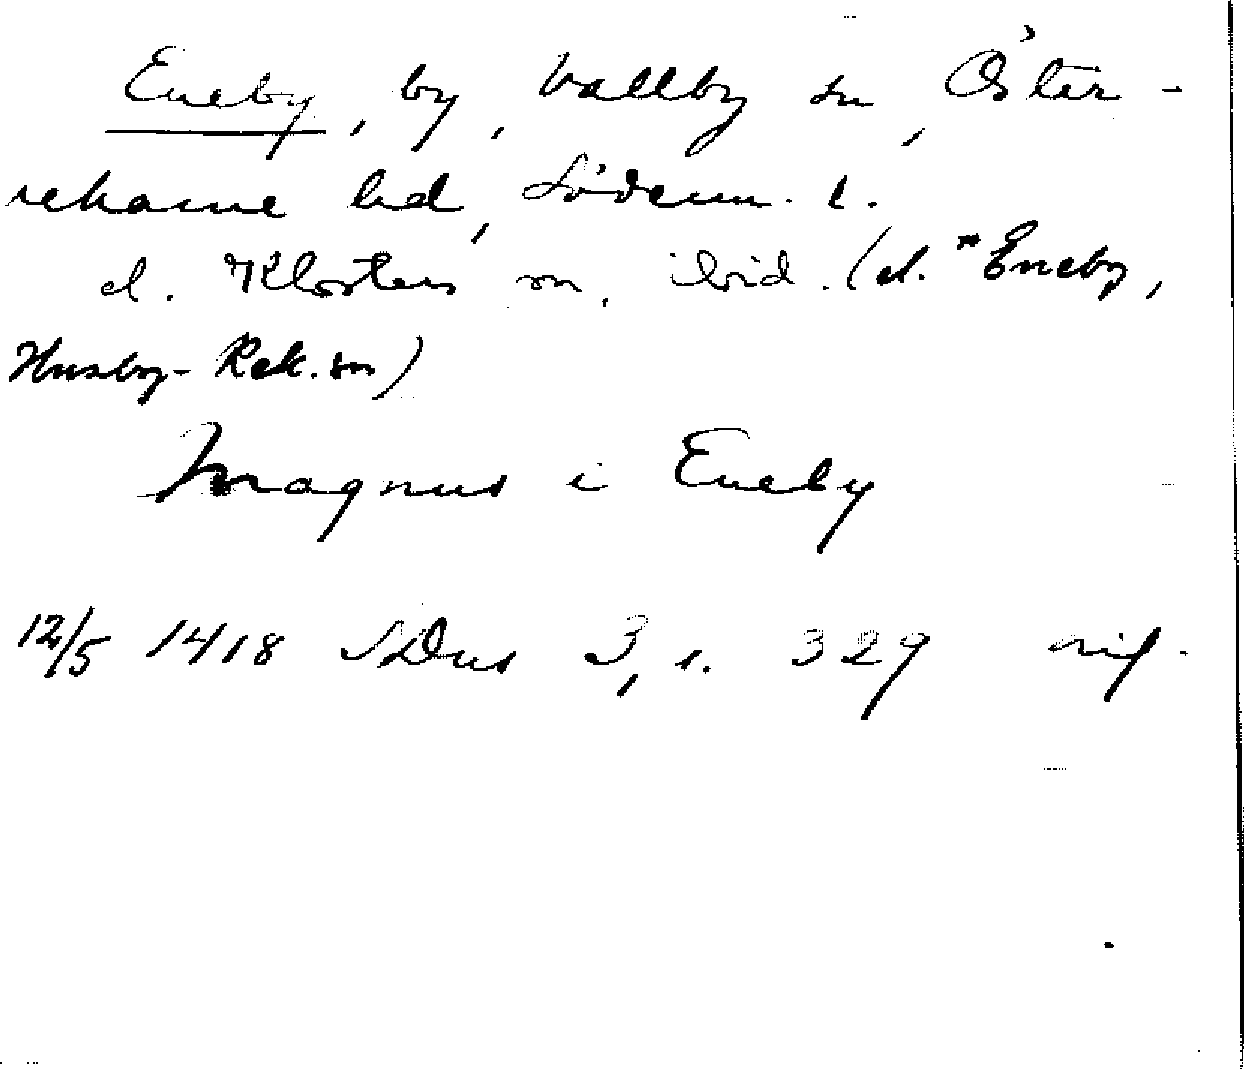 Eneby, by, Vallby sn, Öster-
rekarne hd, Söderm. l.
el. Klosters sn, ibid. (el. *Eneby,
Husby-Rek. sn)
Magnus i Eneby
12/5 1418 SDns 3, s. 329